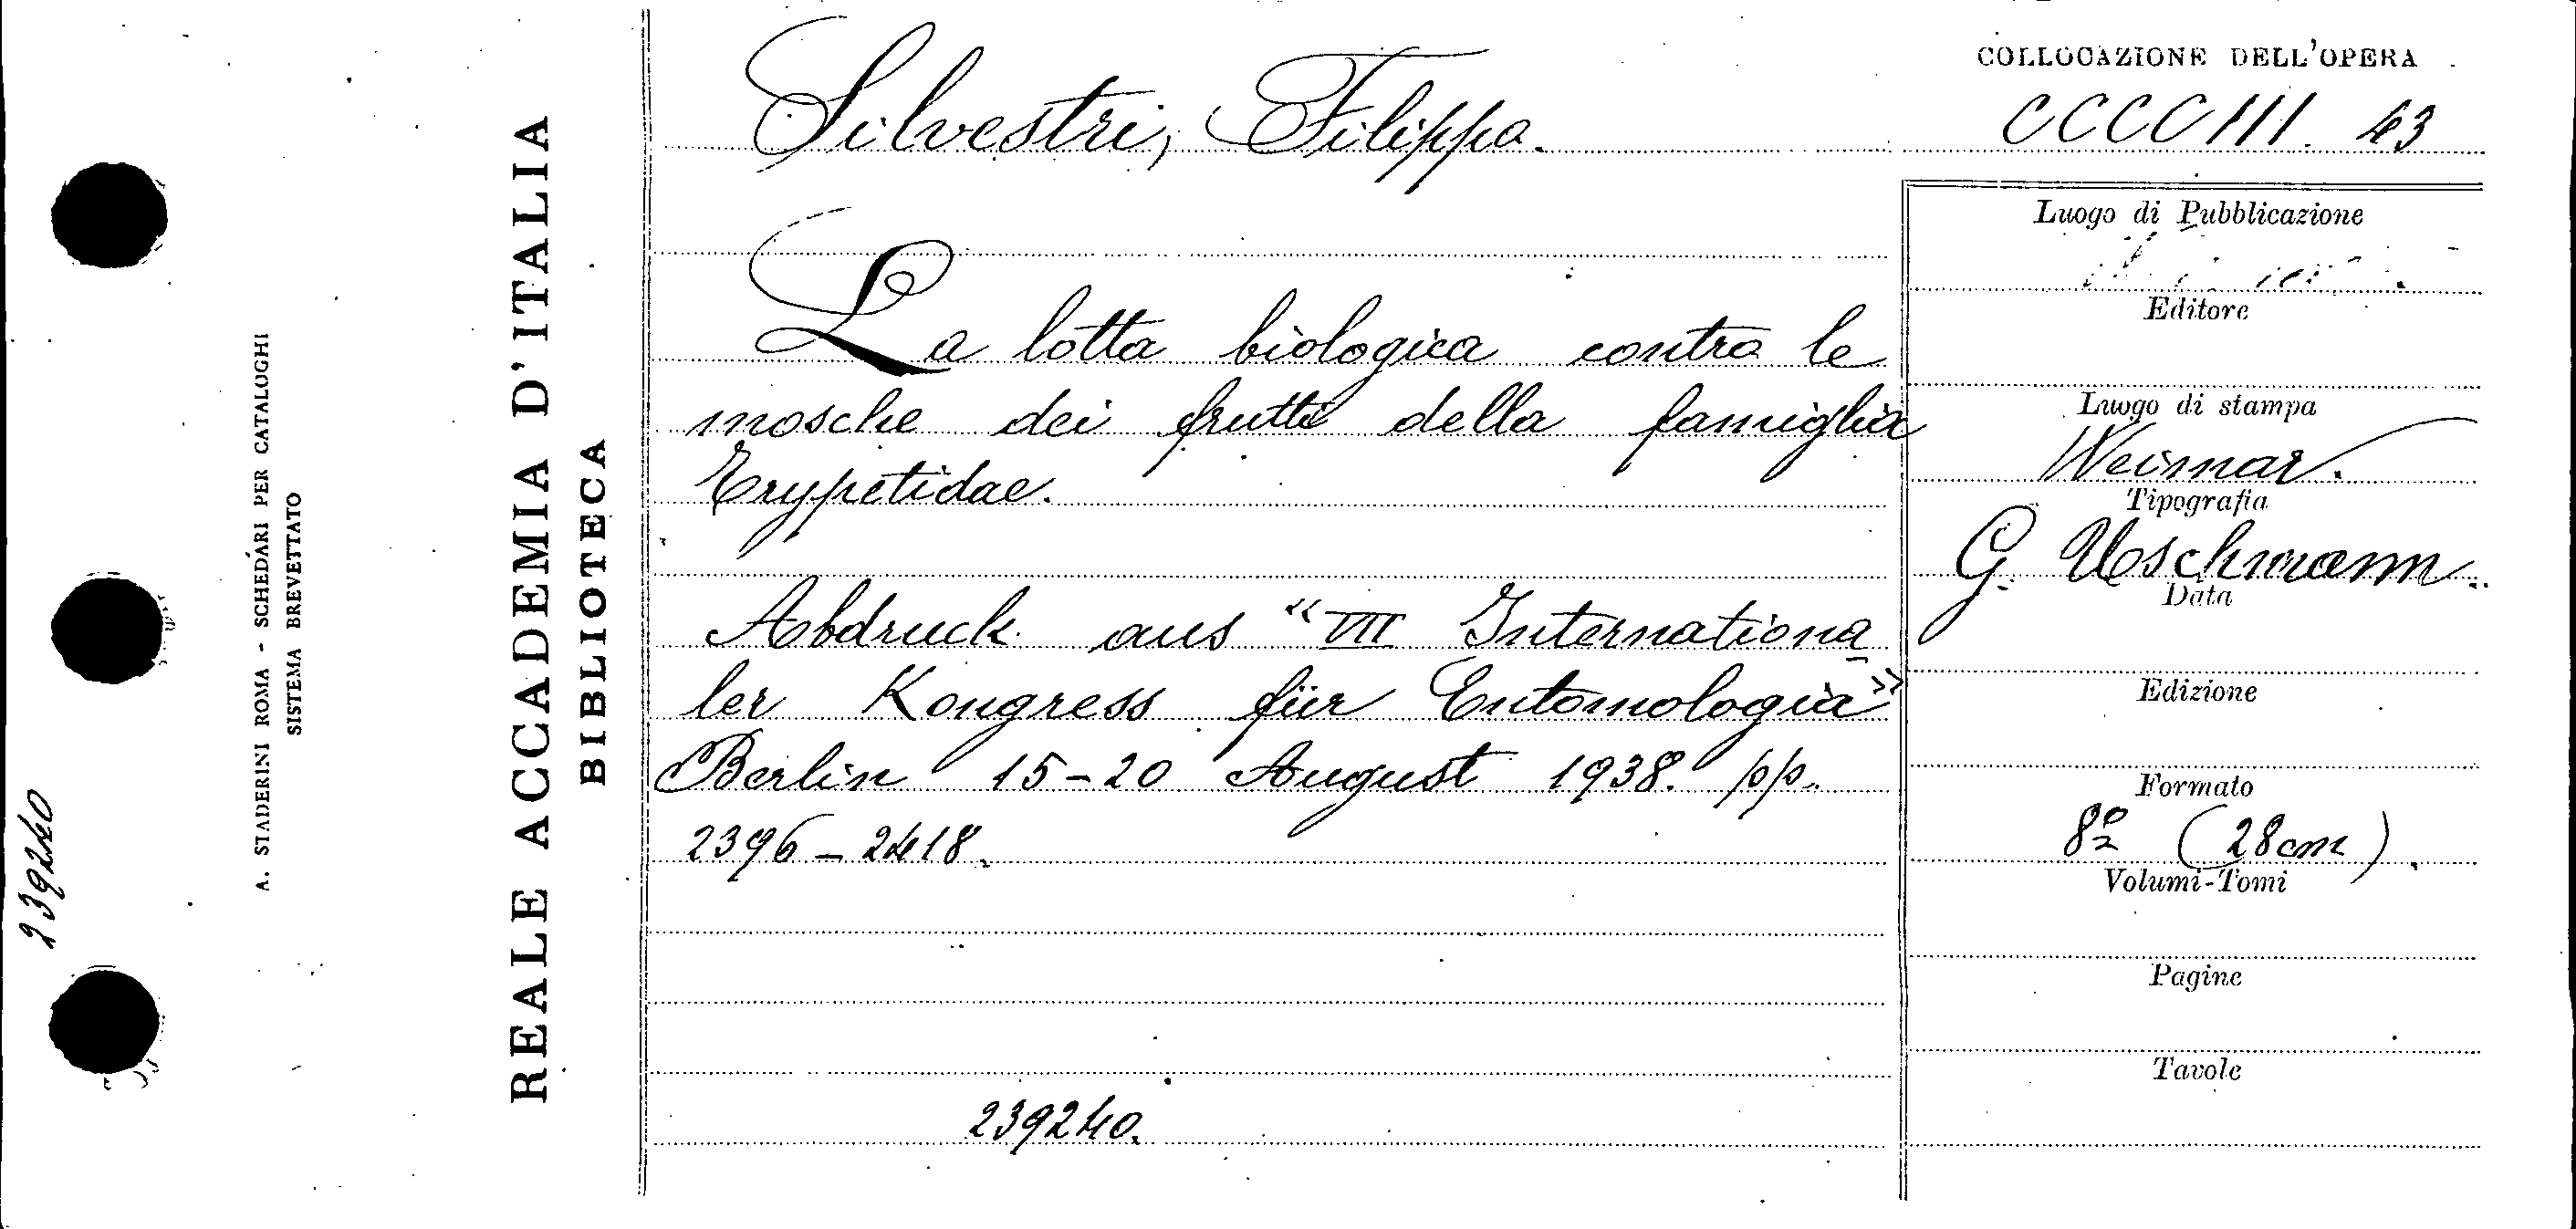 Silvestri, Filippo.
La lotta biologica contro le
mosche dei frutti della famiglia
Trypetidae.
Abdruck aus "VII Internationa
ler Kongress für Entomologia"
Berlin 15-20 August 1938. pp.
2396-2418.
239240.
COLLOCAZIONE DELL'OPERA
CCCCIII. 43
Luogo di Pubblicazione
Editore
Luogo di stampa
Weimar.
Tipografia
G. Uschmann.
Data
Edizione
Formato
8º (28cm).
Volumi-Tomi
Pagine
Tavole
REALE ACCADEMIA D'ITALIA
BIBLIOTECA
A. STADERINI ROMA - SCHEDARI PER CATALOGHI
SISTEMA BREVETTATO
239240